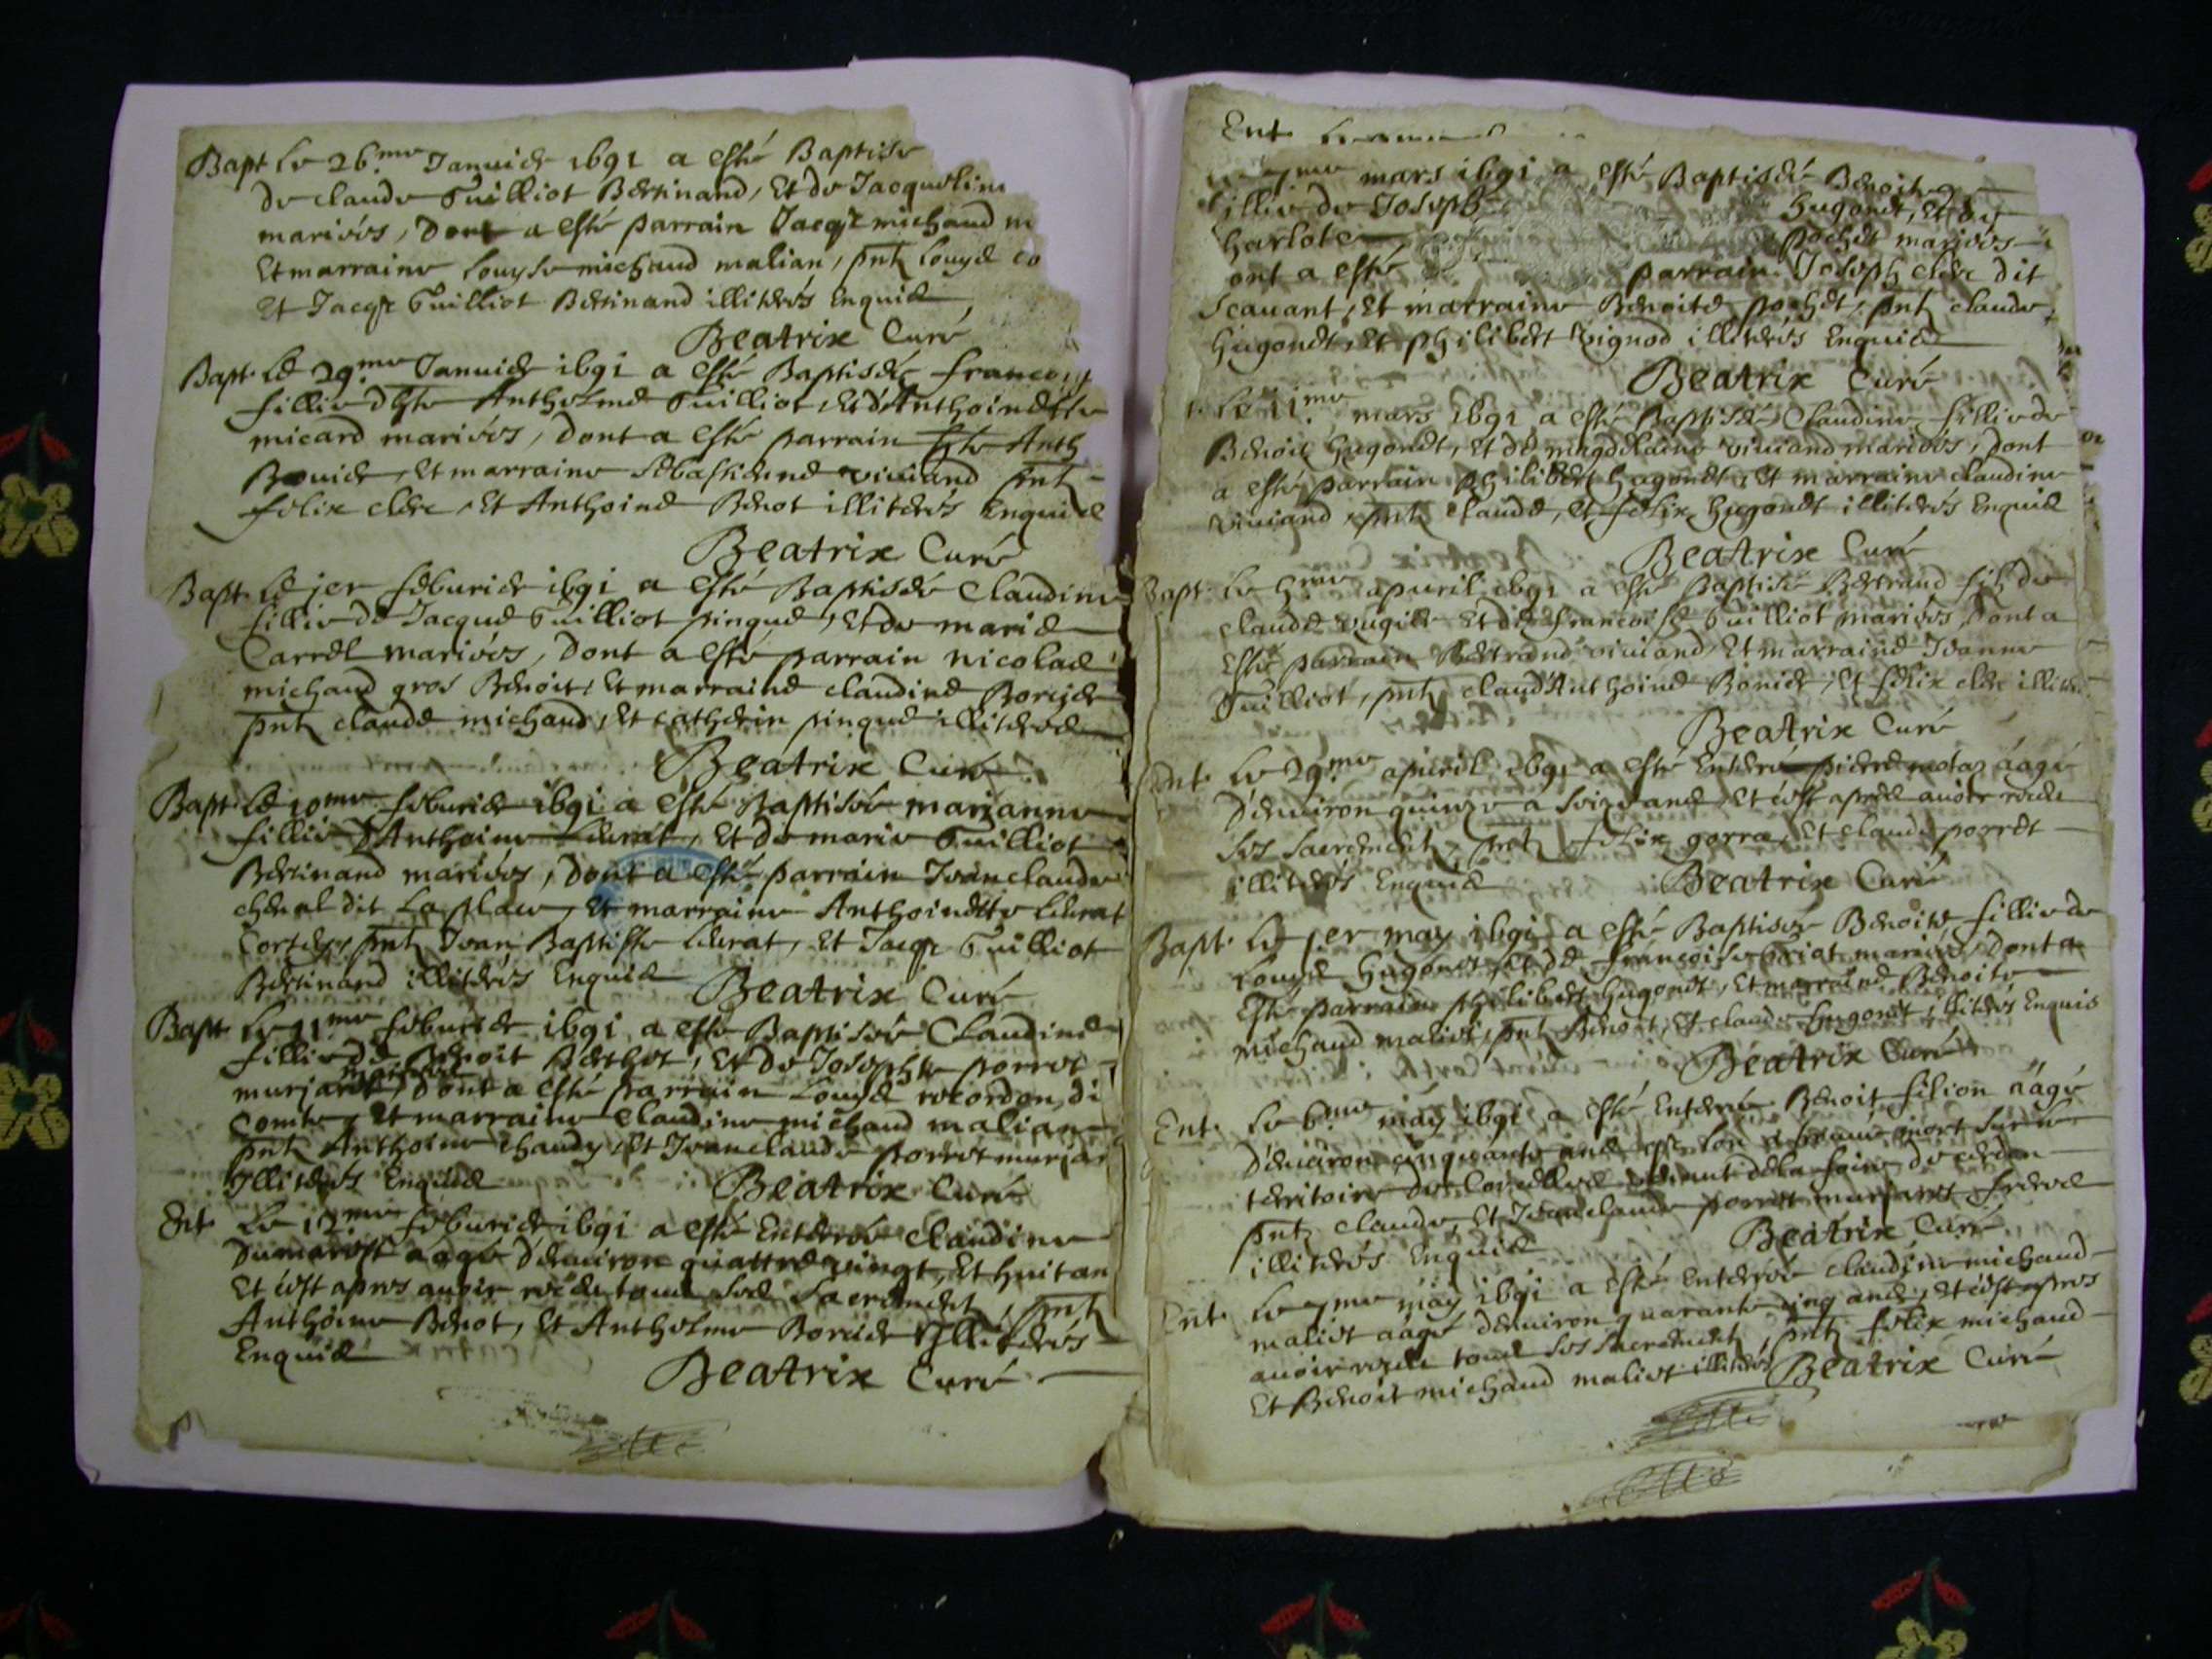 Bapt Le 26.me Januier 1691 a esté Baptisé
de claude Guilliot Bertinand, Et de Jacqueline
mariées, Dont a esté parrain Jacq~e michaud m
Et marraine Louyse michaud malian, pnts Louys co
Et Jacq~e Guilliot Bertinand illiterés Enquis
Beatrix Curé
Bapt. Le 29.me Januier 1691 a esté Baptisée francois
fillie d'hte Antholme Guilliot, Et d'Anthoinette
micard mariées, Dont a esté parrain hte Anth
Bouier, Et marraine sebastienne viuiand pnts
felix clerc, Et Anthoine Benot illiterés Enquis
Beatrix Curé
Bapt. Le jer feburier 1691 a esté Baptisée Claudine
fillie de Jacque Guilliot pingue, Et de marie
Carrel mariées, Dont a esté parrain nicolas
michaud gros Benoit, Et marraine claudine Borcier
pnts claude michaud, Et catherin pingue illiterés
Beatrix Curé
Bapt. Le 10me feburier 1691 a esté Baptisée marianne
fillie D'Anthoine Liurat, Et de marie Guilliot
Bertinand mariées, Dont a esté parrain Jean claude
cheual dit La place, Et marraine Anthoinette Liurat
Cortey, pnts Jean Baptiste Liurat, Et Jacq~e Guilliot
Bertinand illiterés Enquis
Beatrix Curé
Bapt Le 11me feburier 1691 a esté Baptisée Claudine
fillie de Benoit Berthet, Et de Josephte porret
murjaret mariées, Dont a esté parrain Louys recordon di
comte, Et marraine claudine michaud malian
pnts Anthoine chaudy, Et Jean claude porret murjar
illiterés Enquis
Beatrix Curé
Ent Le 12me feburier 1691 a esté Enterrée claudine
Dumarest aagé D'enuiron quattre vingt, Et huit an
Et c'est apres auoir receu tous ses Sacrements, pnts
Anthoine Benot, Et Antholme Borcier illiterés
Enquis
Beatrix Curé
Ent
7me mars 1691 a esté Baptisée Benoite
fillie de Joseph Hugonet, Et de
harlote pochet mariées
ont a esté parrain Joseph clerc dit
Scauant, Et marraine Benoite pochet, pnts claude
Hugonet, Et philibert vignod illiterés Enquis
Beatrix Curé
t. Le 11me mars 1691 a esté Baptisée Claudine fillie de
Benoit Hugonet, Et de magdelaine viuiand mariées, Dont
a esté parrain philibert hugonet, Et marraine claudine
viuiand, pnts claude, Et felix hugonet illiterés Enquis
Beatrix Curé
Bapt. Le apuril 1691 a esté Baptisé Bertrand fils de
claude Et de francoise Guilliot mariées, Dont a
Esté parrain Bertrand viuiand, Et marraine Jeanne
Guilliot, pnts claud'Anthoine Bouier, Et felix clerc illiter
Beatrix Curé
Ent. Le 29.me apuril 1691 a esté Enterré pierre motaz aagé
D'enuiron quinze a seize ans, Et c'est apres auoir receu
ses Sacrements, pnts felix gorra, Et claude porret
illiterés Enquis
Beatrix Curé
Bapt. Le jer may 1691 a esté Baptisée Benoite fillie de
Louys Hugonet, Et de francoise mariées Dont a
Esté parrain philibert Hugonet, Et marraine Benoite
michaud maliet, pnts Benoit, Et claude hugonet illiterés Enquis
Beatrix Curé
Ent. Le 6.me may 1691 a esté Enterré Benoit filion aagé
D'enuiron cinquante ans, mort sur le
territoire de venant de la foire de
pnts claude, Et Jean claude porret murjaret freres
illiterés Enquis
Beatrix Curé
Ent. Le 7me may 1691 a esté Enterrée claudine michaud
maliet aagé D'enuiron quarante cinq ans, Et c'est apres
auoir receu tous ses Sacrements, pnts felix michaud
Et Benoit michaud maliet illiterés
Beatrix Curé